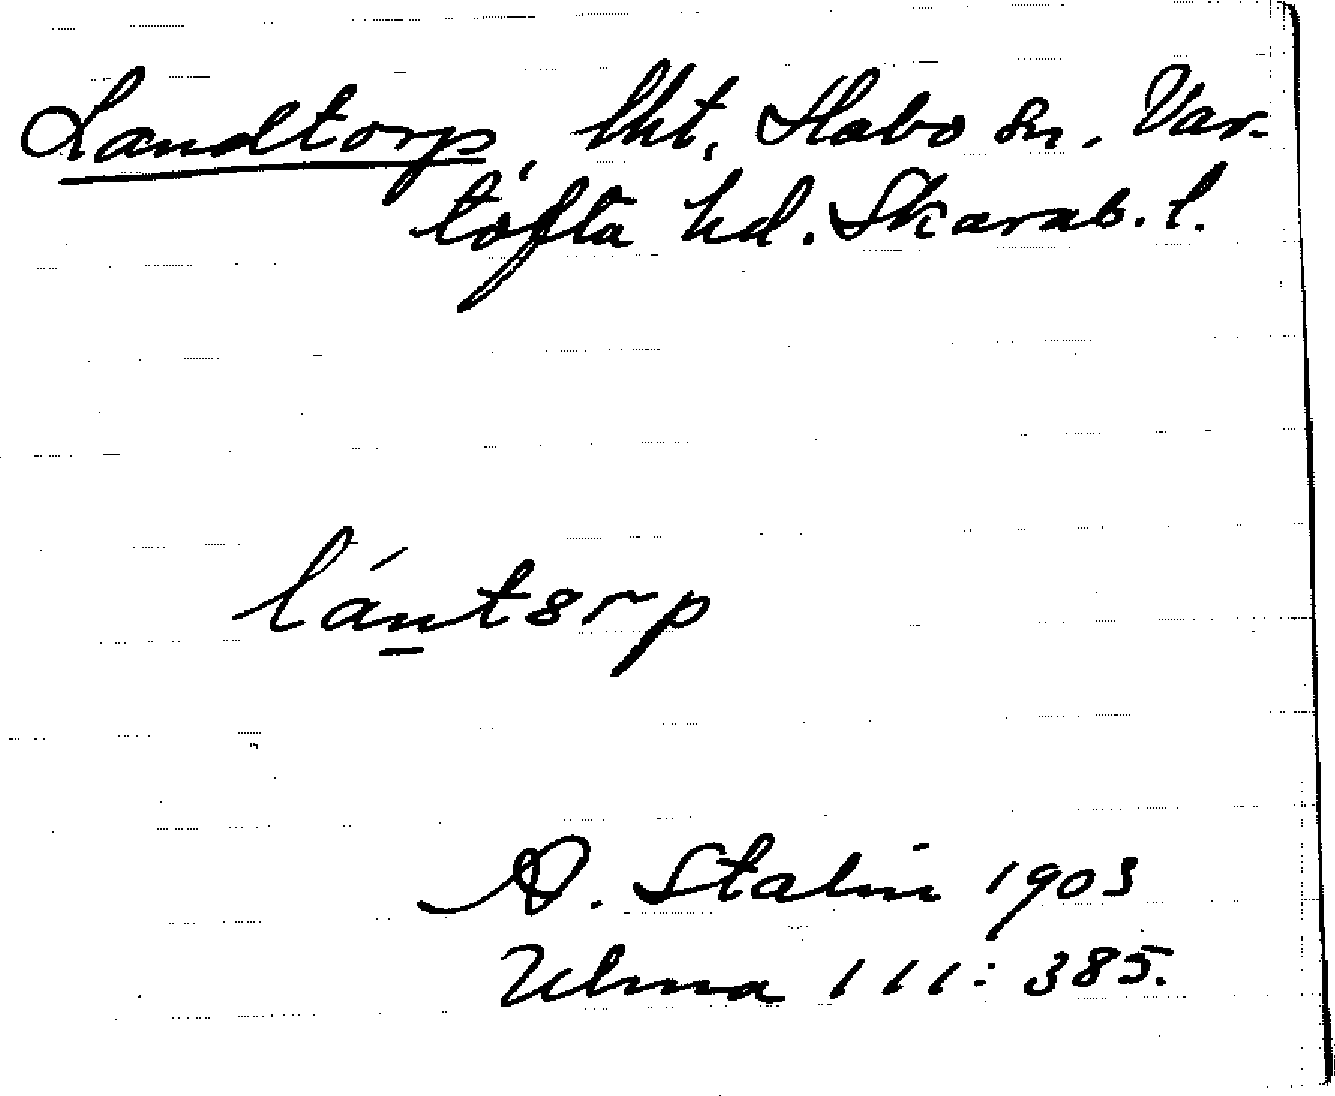 Landtorp, lht, Habo sn, Var-
tofta hd. Skarab. l.
lántorp
A. Stalin 1903
Ulma 111: 385.